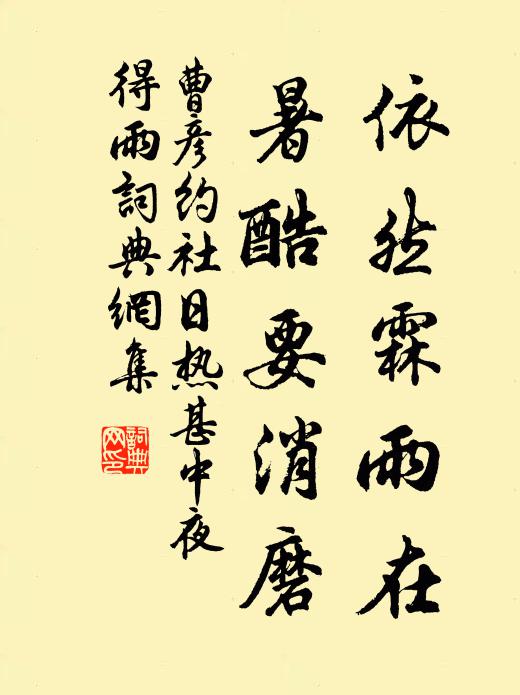 依然霖雨在
暑酷要消磨
曹彦约社日热甚中夜
得雨詞典網集
詞典
网印